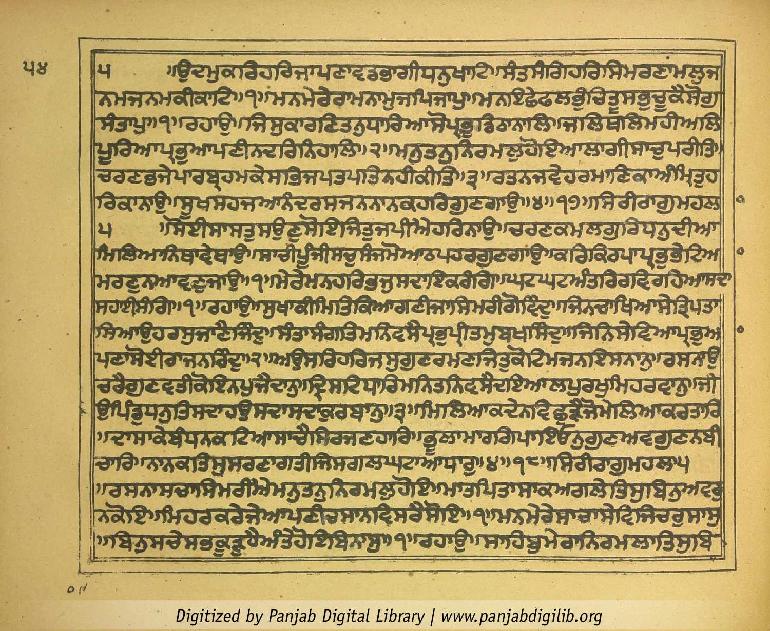 ੫੪
੫ ॥ਉਦਮੁਕਰਿਹਰਿਜਾਪਣਾਵਡਭਾਗੀਧਨੁਖਾਟਿ॥ਸੰਤਸੰਗਿਹਰਿਸਿਮਰਣਾਮਲੁਜ
ਨਮਜਨਮਕੀਕਾਟਿ॥੧॥ਮਨਮੇਰੇਰਾਮਨਾਮੁਜਪਿਜਾਪੁ॥ਮਨਇਛੇਫਲਭੁੰਚਿਤੂਸਭੁਚੂਕੈਸੋਗੁ
ਸੰਤਾਪੁ॥੧॥ਰਹਾਉ॥ਜਿਸੁਕਾਰਣਿਤਨੁਧਾਰਿਆਸੋਪ੍ਰਭੁਡਿਠਾਨਾਲਿ॥ਜਲਿਥਲਿਮਹੀਅਲਿ
ਪੂਰਿਆਪ੍ਰਭੁਆਪਣੀਨਦਰਿਨਿਹਾਲਿ॥੨॥ਮਨੁਤਨੁਨਿਰਮਲੁਹੋਇਆਲਾਗੀਸਾਚੁਪਰੀਤਿ॥
ਚਰਣਭਜੇਪਾਰਬ੍ਰਹਮਕੇਸਭਿਜਪਤਪਤਿਨਹੀਕੀਤਿ॥੩॥ਰਤਨਜਵੇਹਰਮਾਣਿਕਾਅੰਮ੍ਰਿਤੁਹ
ਰਿਕਾਨਾਉ॥ਸੂਖਸਹਜਆਨੰਦਰਸਜਨਨਾਨਕਹਰਿਗੁਣਗਾਉ॥੪॥੧੭॥ਸਿਰੀਰਾਗੁਮਹਲਾ
੫ ॥ਸੋਈਸਾਸਤੁਸਉਣੁਸੋਇਜਿਤੁਜਪੀਐਹਰਿਨਾਉ॥ਚਰਣਕਮਲਗੁਰਿਧਨੁਦੀਆ
ਮਿਲਿਆਨਿਥਾਵੇਥਾਉ॥ਸਾਚੀਪੂੰਜੀਸਚੁਸੰਜਮੋਆਠਪਹਰਗੁਣਗਾਉ॥ਕਰਿਕਿਰਪਾਪ੍ਰਭੁਭੇਟਿਆ
ਮਰਣੁਨਆਵਣੁਜਾਉ॥੧॥ਮੇਰੇਮਨਹਰਿਭਜੁਸਦਾਇਕਰੰਗਿ॥ਘਟਘਟਅੰਤਰਿਰਵਿਰਹਿਆਸਦਾ
ਸਹਾਈਸੰਗਿ॥੧॥ਰਹਾਉ॥ਸੁਖਾਕੀਮਿਤਿਕਿਆਗਣੀਜਾਸਿਮਰੀਗੋਵਿੰਦੁ॥ਜਿਨਚਾਖਿਆਸੇਤ੍ਰਿਪਤਾ
ਸਿਆਉਹਰਸੁਜਾਣੈਜਿੰਦੁ॥ਸੰਤਾਸੰਗਤਿਮਨਿਵਸੈਪ੍ਰਭੁਪ੍ਰੀਤਮੁਬਖਸਿੰਦੁ॥ਜਿਨਿਸੇਵਿਆਪ੍ਰਭੁਆ
ਪਣਾਸੋਈਰਾਜਨਰਿੰਦੁ॥੨॥ਅਉਸਰਿਹਰਿਜਸੁਗੁਣਰਮਣਜਿਤੁਕੋਟਿਮਜਨਇਸਨਾਨੁ॥ਰਸਨਾਉ
ਚਰੈਗੁਣਵਤੀਕੋਇਨਪੁਜੈਦਾਨੁ॥ਦ੍ਰਿਸਟਿਧਾਰਿਮਨਿਤਨਿਵਸੈਦਇਆਲਪੁਰਖੁਮਿਹਰਵਾਨੁ॥ਜੀ
ਉਪਿੰਡੁਧਨੁਤਿਸਦਾਹਉਸਦਾਸਦਾਕੁਰਬਾਨੁ॥੩॥ਮਿਲਿਆਕਦੇਨਵਿਛੁੜੈਜੋਮੇਲਿਆਕਰਤਾਰਿ
॥ਦਾਸਾਕੇਬੰਧਨਕਟਿਆਸਾਚੈਸਿਰਜਣਹਾਰਿ॥ਭੂਲਾਮਾਰਗਿਪਾਇਓਨੁਗੁਣਅਵਗੁਣਨਬੀ
ਚਾਰਿ॥ਨਾਨਕਤਿਸੁਸਰਣਾਗਤੀਜਿਸਗਲਘਟਾਆਧਾਰੁ॥੪॥੧੮॥ਸਿਰੀਰਾਗੁਮਹਲਾ੫
॥ਰਸਨਾਸਚਾਸਿਮਰੀਐਮਨੁਤਨੁਨਿਰਮਲੁਹੋਇ॥ਮਾਤਪਿਤਾਸਾਕਅਗਲੇਤਿਸੁਬਿਨੁਅਵਰੁ
ਨਕੋਇ॥ਮਿਹਰਕਰੇਜੇਆਪਣੀਚਸਾਨਵਿਸਰੈਸੋਇ॥੧॥ਮਨਮੇਰੇਸਾਚਾਸੇਵਿਜਿਚਰੁਸਾਸੁ
॥ਬਿਨੁਸਚੇਸਭਕੂੜੁਹੈਅੰਤੇਹੋਇਬਿਨਾਸੁ॥੧॥ਰਹਾਉ॥ਸਾਹਿਬੁਮੇਰਾਨਿਰਮਲਾਤਿਸੁਬਿ
Digitized by Panjab Digital Library | www.panjabdigilib.org